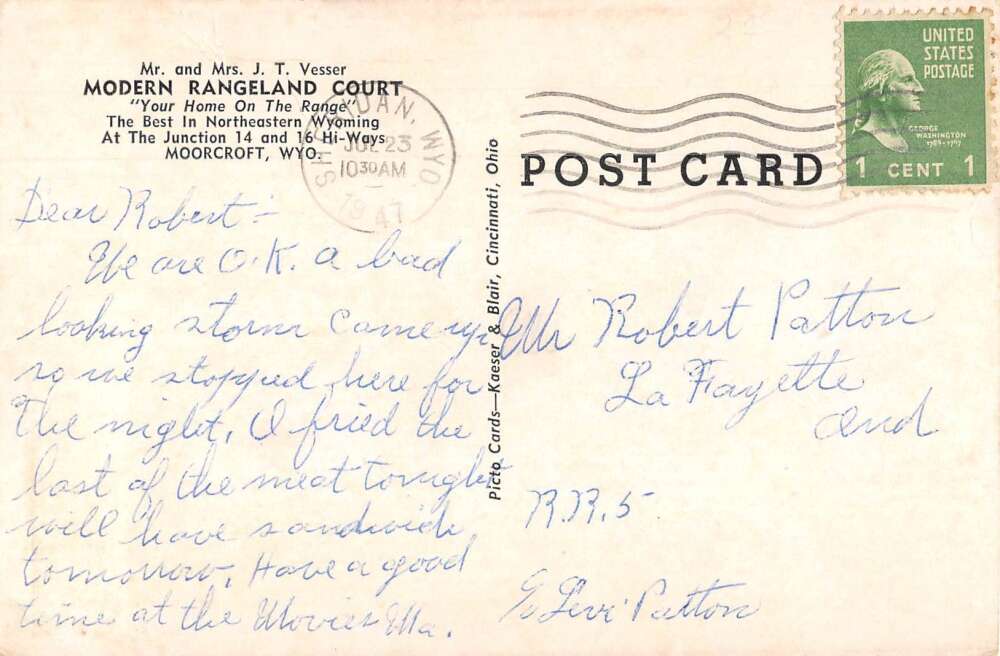 Mr. and Mrs. J. T. Vesser
MODERN RANGELAND COURT
"Your Home On The Range"
The Best In Northeastern Wyoming
At The Junction 14 and 16 Hi-Ways
MOORCROFT, WYO.
SHERIDAN, WYO
JUL 23
10 30 AM
1947
UNITED
STATES
POSTAGE
GEORGE
WASHINGTON
1789-1797
1 CENT 1
POST CARD
Picto Cards—Kaeser & Blair, Cincinnati, Ohio
Dear Robert:-
We are O.K. a bad
looking storm came up
so we stopped here for
the night. I fried the
last of the meat tonight
will have sandwich
tomorrow. Have a good
time at the Movies Ma.
Mr Robert Patton
La Fayette
Ind
R.R.5
c/o Levi Patton